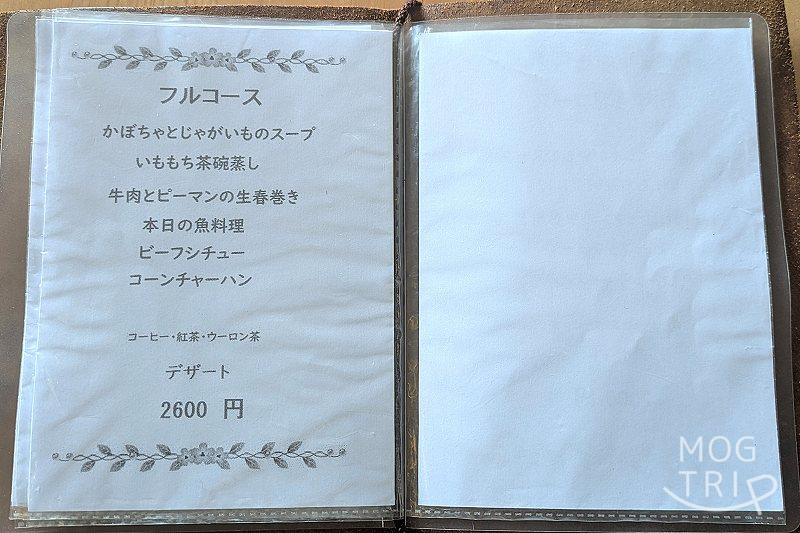 フルコース
かぼちゃとじゃがいものスープ
いももち茶碗蒸し
牛肉とピーマンの生春巻き
本日の魚料理
ビーフシチュー
コーンチャーハン
コーヒー・紅茶・ウーロン茶
デザート
2600 円
MOG
TRIP